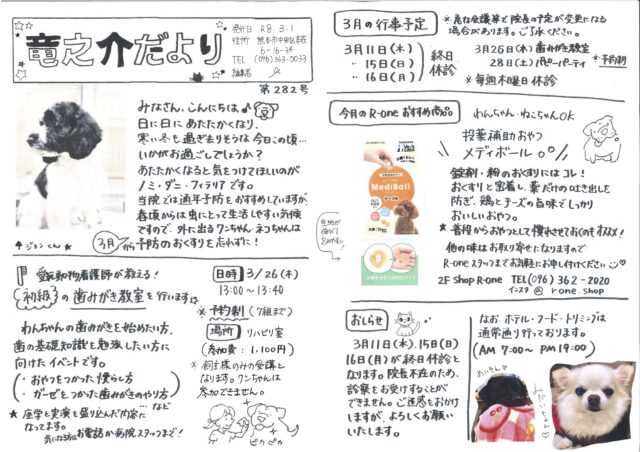 竜之介だより
発行日 R8.3.1
住所 熊本市中央区本荘
6-16-34
TEL (096)363-0033
編集者
第282号
みなさん、こんにちは
日に日にあたたかくなり、
寒い冬も過ぎまりそうな今日この頃…
いかがお過ごしでしょうか?
あたたかくなると気をつけてほしいのが
ノミ・ダニ・フィラリアです。
当院では通年予防をおすすめしていますが、
春頃からは虫にとって生活しやすい気候
ですので、外に出るワンちゃん・ネコちゃんは
3月から予防のおくすりを忘れずに!
↑ジョンくん★
愛玩動物看護師が教える!
初級の歯みがき教室を行います☆
わんちゃんの歯みがきを始めたい方、
歯の基礎知識を勉強したい方に
向けたイベントです。
・おやつをつかった慣らし方
・ガーゼをつかった歯みがきのやり方
…など
★ 座学と実演を盛り込んだ内容に
なってます。
気になる方はお電話か病院スタッフまで!
日時 3/26(木)
13:00~13:40
☆予約制(7組まで)
場所 リハビリ室
(参加費:1,100円)
※飼主様のみの受講と
なります。ワンちゃんは
参加できません。
ピカピカ
3月の行事予定
※急な会議等で院長の予定が変更になる
場合があります。ご了承ください。
3月11日(水)
〃 15日(日)
〃 16日(月)
終日
休診
3月26日(木)歯みがき教室
28日(土)パピーパーティ
※予約制
※毎週木曜日休診
今月のR-oneおすすめ商品
わんちゃん・ねこちゃんOK
投薬補助おやつ
メディボール
MediBall
チーズ味
生地が
伸びて
包みやすい
錠剤・粉のおくすりにはコレ!
おくすりと密着し、薬だけのはき出しを
防ぎ、鶏とチーズの旨味でしっかり
おいしいおやつ。
★普段からおやつとして慣らさせておくのオススメ!
他の味はお取り寄せになりますので
R-oneスタッフまでお気軽にお申し付けください
2F Shop R-one TEL(096)362-2020
インスタ @ r_one.shop
おしらせ
3月11日(水)、15日(日)
16日(月)が終日休診と
なります。院長不在のため、
診察をお受けすることが
できません。ご迷惑をおかけ
しますが、よろしくお願い
いたします。
なお、ホテル・フード・トリミングは
通常通り行っております。
(AM 7:00~ PM 19:00)